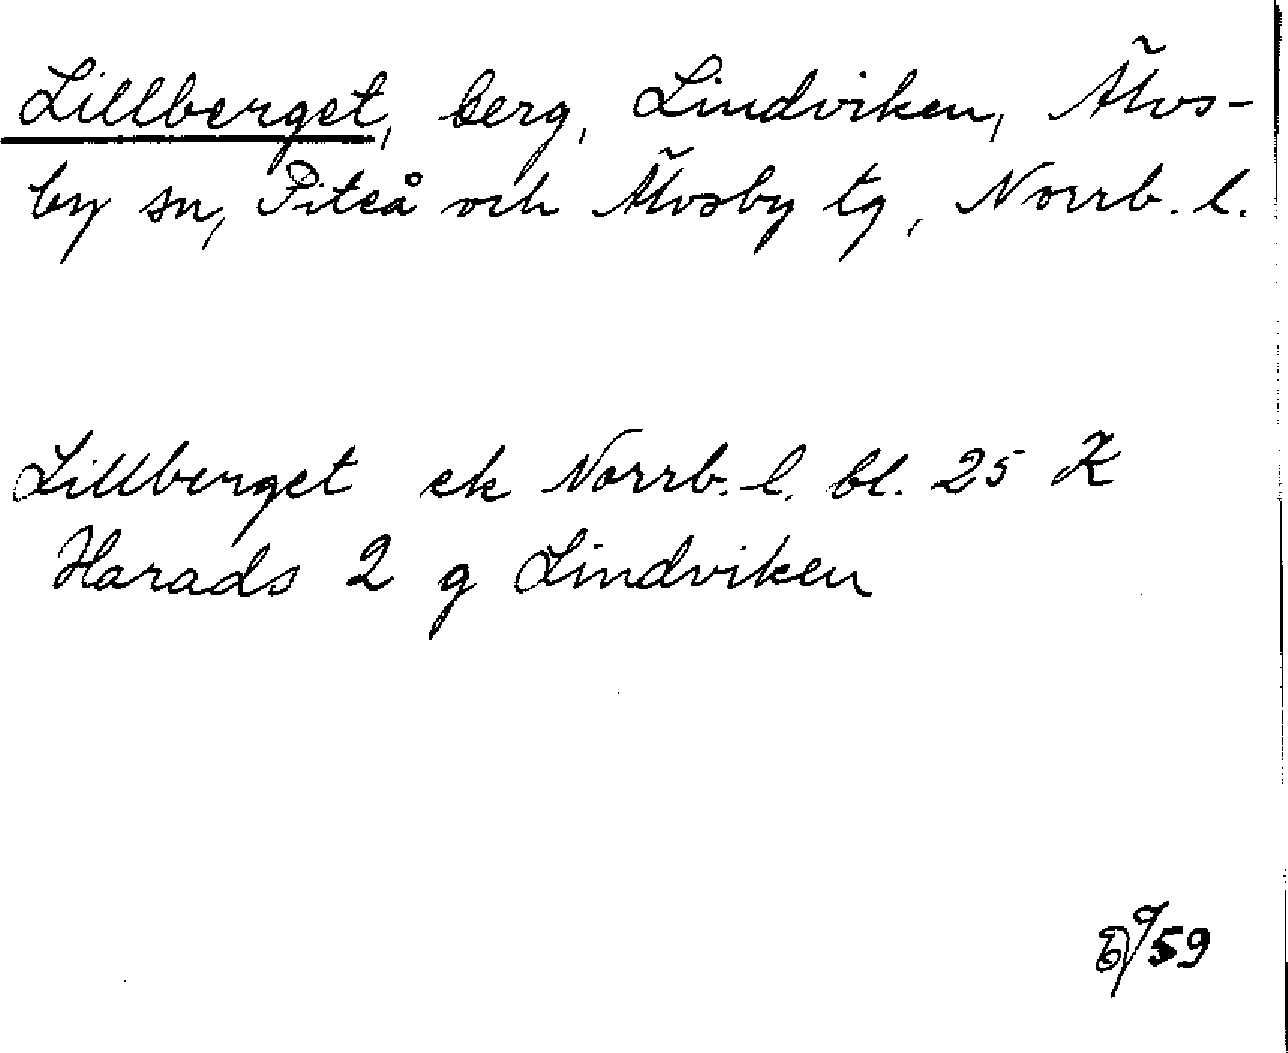 Lillberget, berg, Lindviken, Älvs-
by sn, Piteå och Älvsby tg, Norrb. l.
Lillberget ek Norrb. l. bl. 25 K
Harads 2 g Lindviken
59